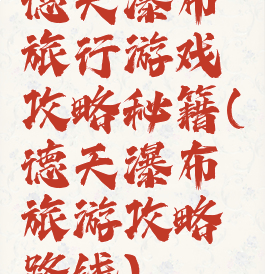 德天瀑布
旅行游戏
攻略秘籍(
德天瀑布
旅游攻略
路线)